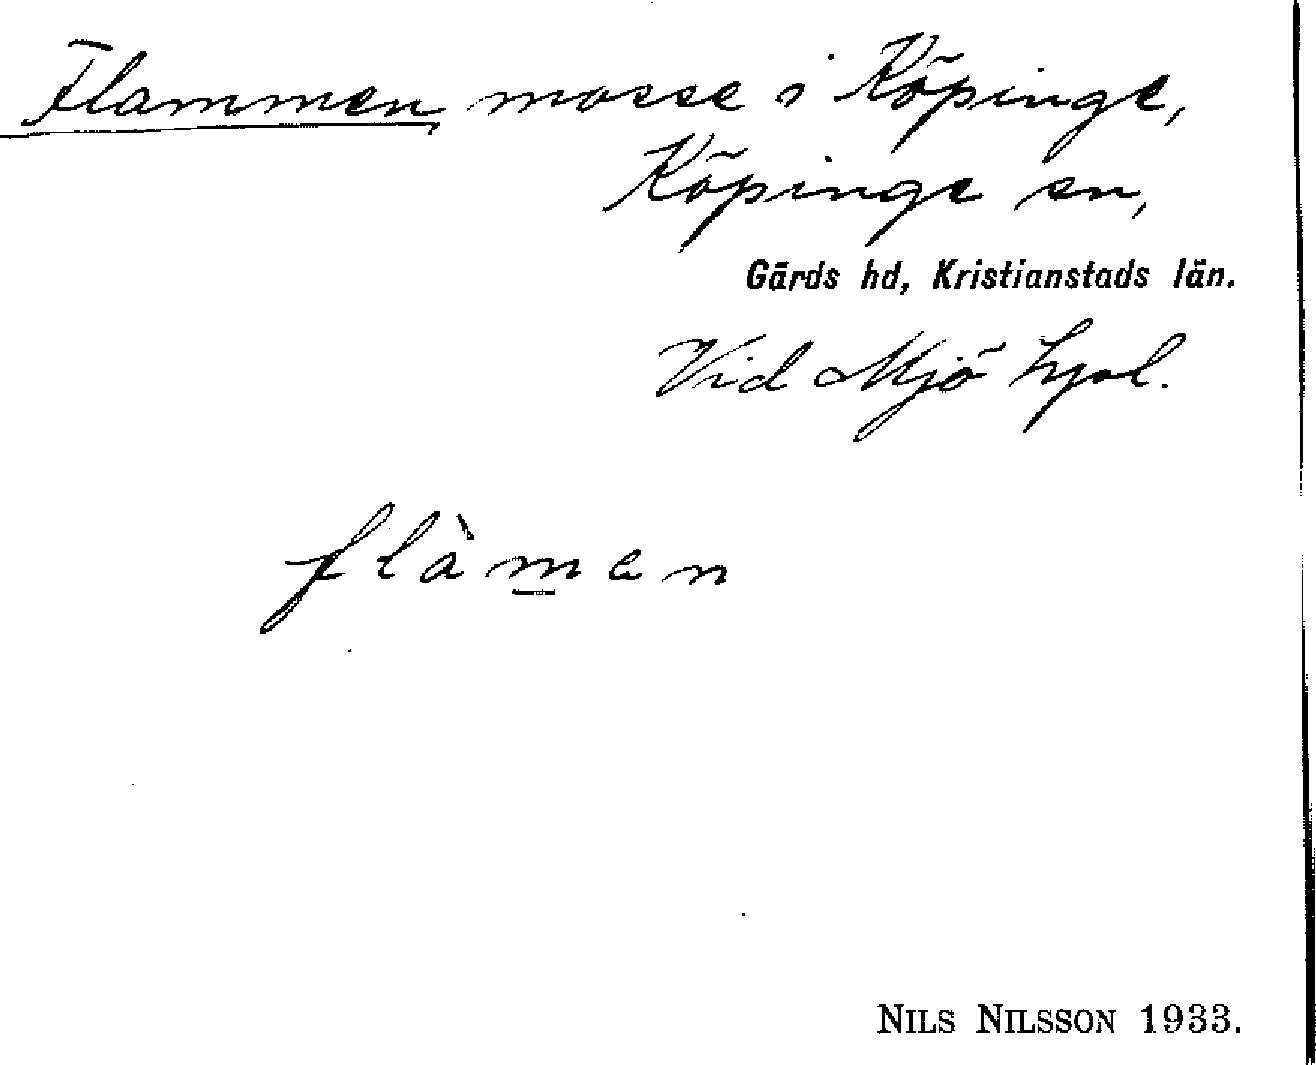 Flammen, mosse i Köpinge,
Köpinge sn,
Gärds hd, Kristianstads län.
Vid Mjö
flàm̲en
NILS NILSSON 1933.